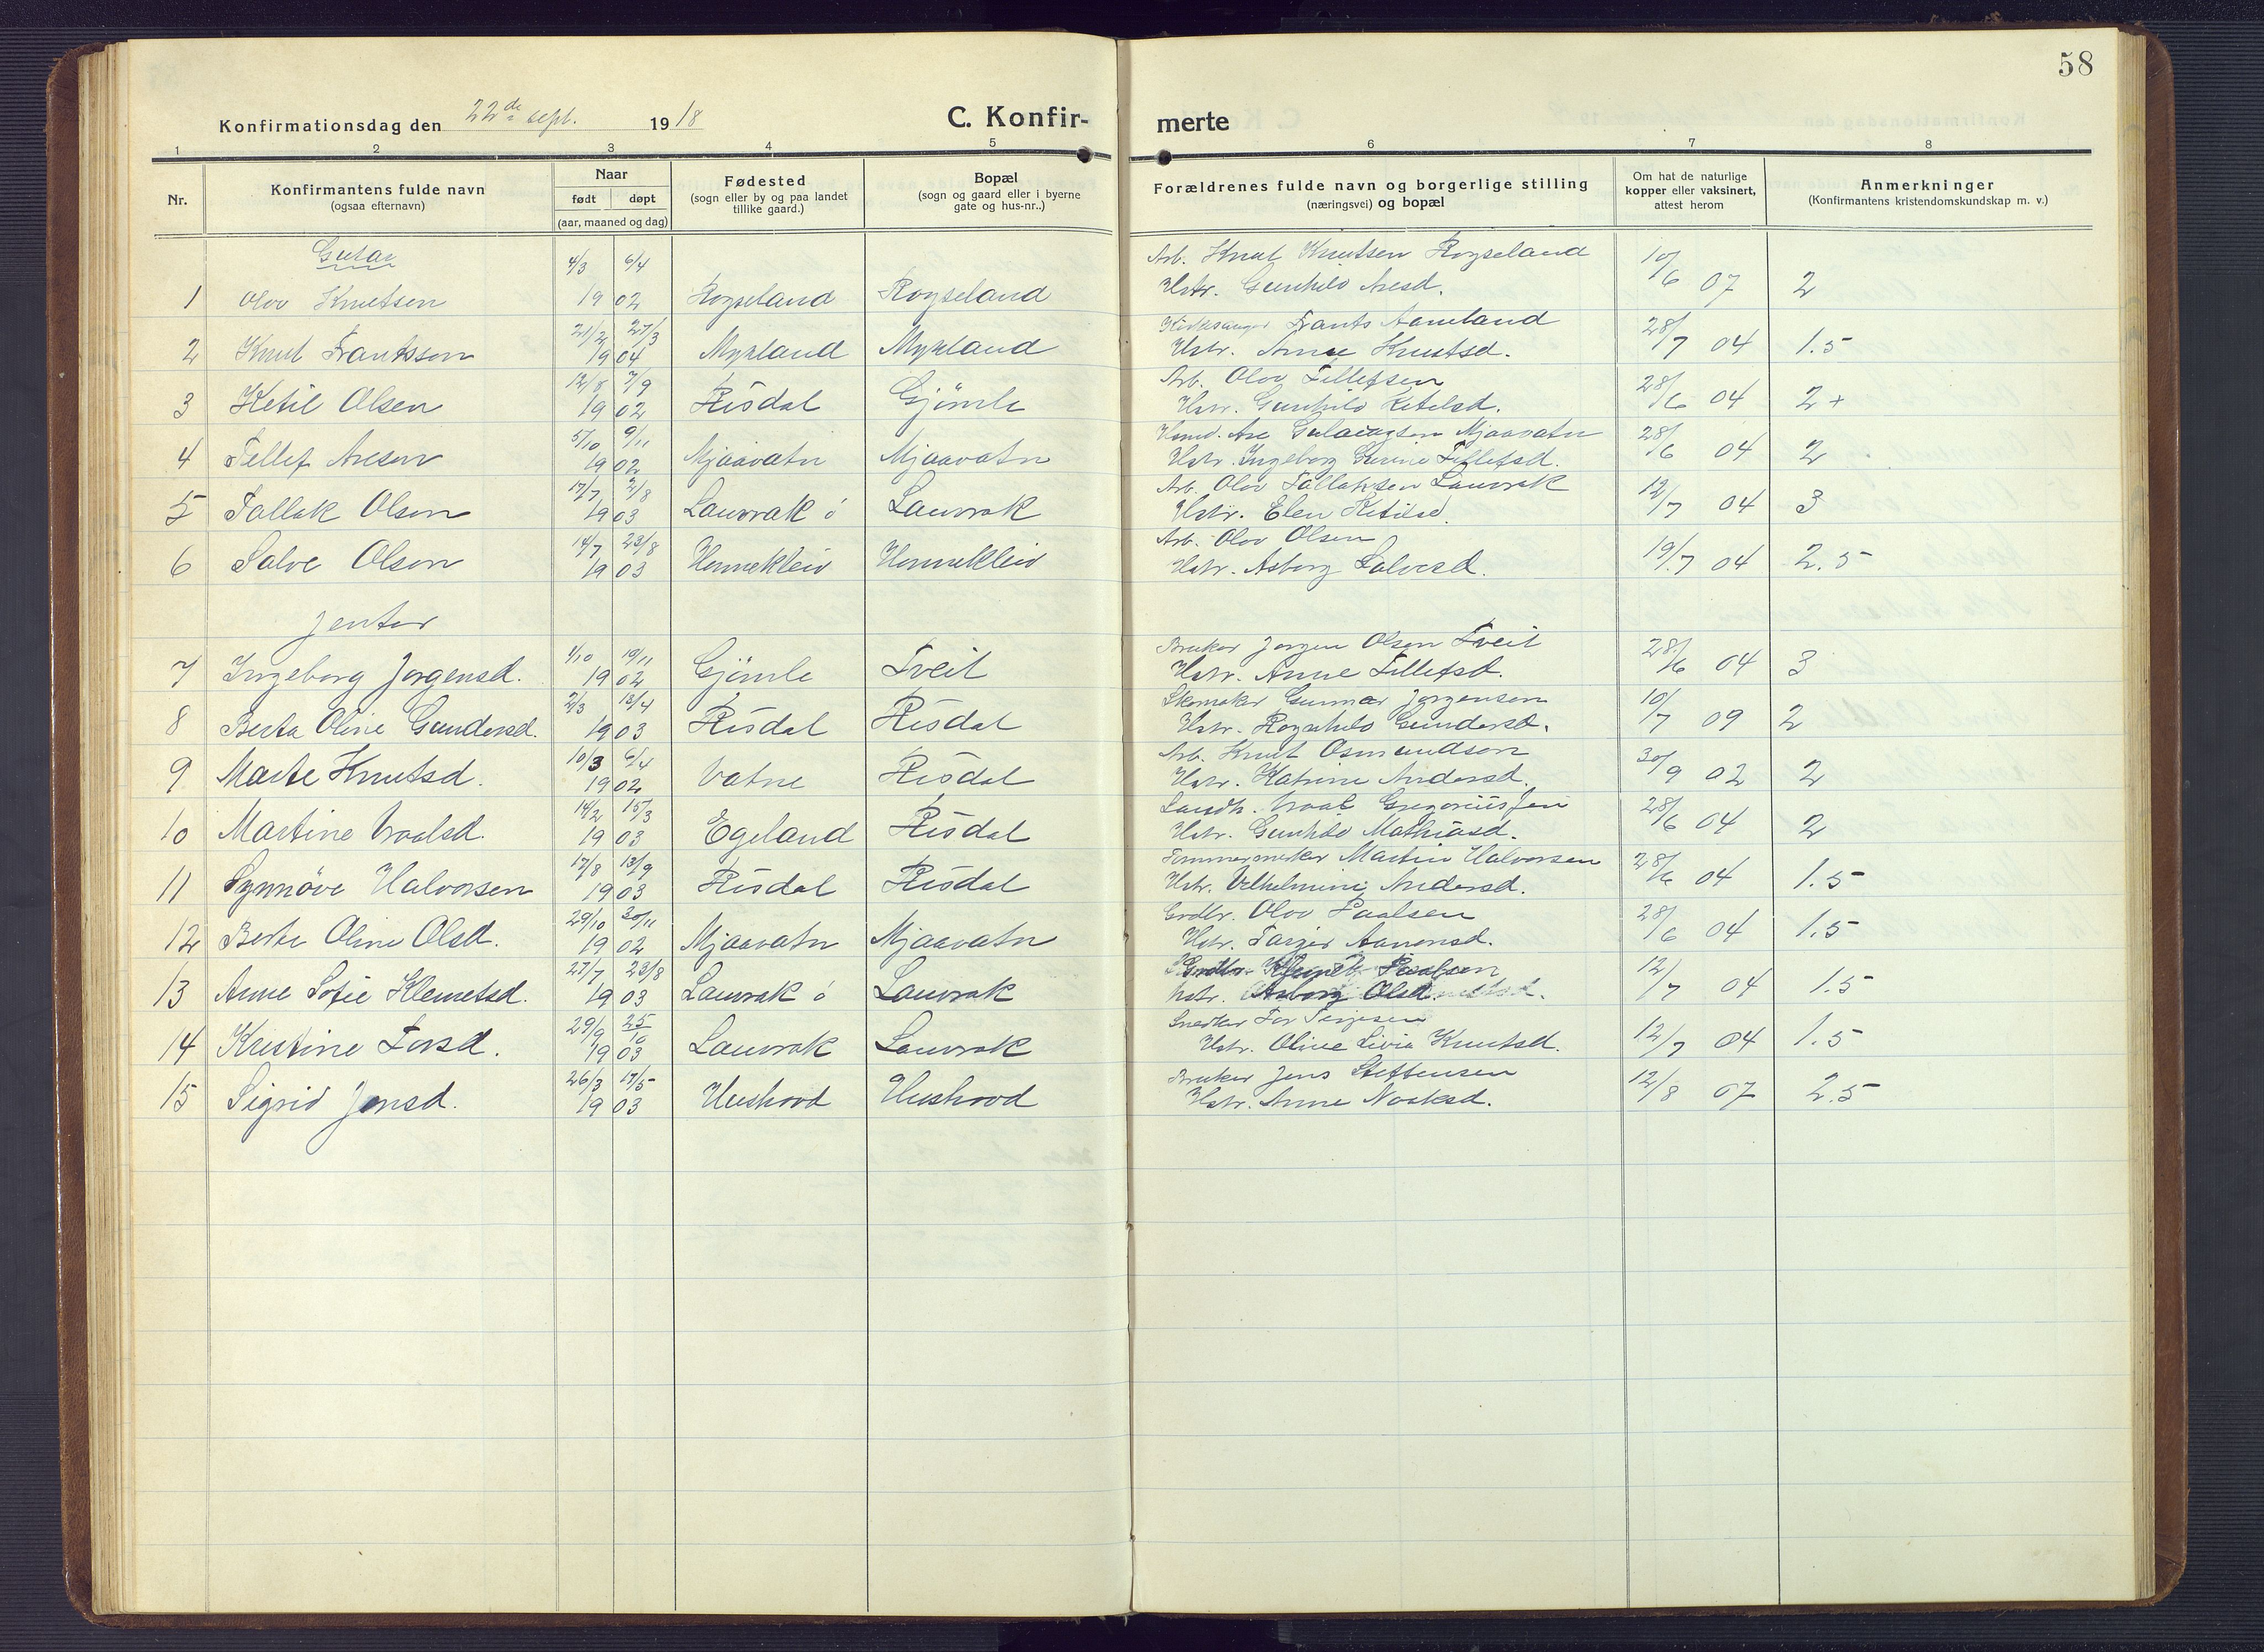 58
Konfirmationsdag den 22de sept. 1918
C. Konfir- merte
1 2 3 4 5 6 7 8
Nr.
Konfirmantens fulde navn
(ogsaa efternavn)
Naar
født døpt
(aar, maaned og dag)
Fødested
(sogn eller by og paa landet
tillike gaard.)
Bopæl
(sogn og gaard eller i byerne
gate og hus-nr..)
Forældrenes fulde navn og borgerlige stilling
(næringsvei) og bopæl
Om hat de naturlige
kopper eller vaksinert,
attest herom
Anmerkninger
(Konfirmantens kristendomskundskap m. v.)
Gutar
4/3 6/4 Arb. Knut Knutsen Røyseland 10/6
1 Olov Knutsen 1902 Røyseland Røyseland Hstr. Gunhild Aresd. 07 2
21/2 27/3 Kirkesanger Frants Aamland 28/7
2 Knut Frantsson 1904 Mykland Mykland Hstr. Anne Knutsd. 04 1.5
12/8 7/9 Arb. Olov Tellefsen 28/6
3 Ketil Olsen 1902 Risdal Gjömle Hstr. Gunhild Ketilsd. 04 2+
5/10 9/11 Are Mjaavatn 28/6
4 Tellef Aresen 1902 Mjaavatn Mjaavatn Hstr. Ingeborg Gurine Tellefsd. 04 2
17/7 2/8 Arb. Olov Tallaksen Lauvrak 12/7
5 Tallak Olsen 1903 Lauvrak ö Lauvrak Hstr. Elen Ketilsd. 04 3
14/7 23/8 Arb. Olov Olsen 19/7
6 Salve Olsen 1903 Honnekleiv Honnekleiv Hstr. Asborg Salvesd. 04 2.5
Jentor
1/10 19/11 Bruker Jorgen Olsen Tveit 28/6
7 Ingeborg Jorgensd. 1902 Gjömle Tveit Hstr. Anne Tellefsd. 04 3
2/3 13/4 Skomaker Gunnar Jørgensen 10/7
8 Berta Oline Gundersd. 1903 Risdal Risdal Hstr. Gundersd. 09 2
10/3 6/4 Arb. Knut Osmundson 30/9
9 Marte Knutsd. 1902 Vatne Risdal Hstr. Katrine Andersd. 02 2
14/2 15/3 Landh. Vraal Gregoriusjen 28/6
10 Martine Vraalsd. 1903 Egeland Risdal Hstr. Gunhild Mathiasd. 04 2
17/8 13/9 Martin Halvorsen 28/6
11 Synnöve Halvorsen 1903 Risdal Risdal Hstr. Vilhelmine Andersd. 04 1.5
29/10 30/11 Grdbr. Olov Paalsen 28/6
12 Berte Oline Olsd. 1902 Mjaavatn Mjaavatn Hstr. Targjer Aanonsd. 04 1.5
27/7 23/8 12/7
13 Anne Sofie Klemetsd. 1903 Lauvrak ö Lauvrak Hstr. Asborg Olsd. 04 1.5
29/9 25/10 Snedker Tor Terjesen 12/7
14 Kristine Torsd. 1903 Lauvrak Lauvrak Hstr. Oline Livie Knutsd. 04 1.5
26/3 17/5 Bruker Jens Steffensen 12/8
15 Sigrid Jensd. 1903 Heushovd Heushovd Hstr. Anne Noaksd. 07 2.5